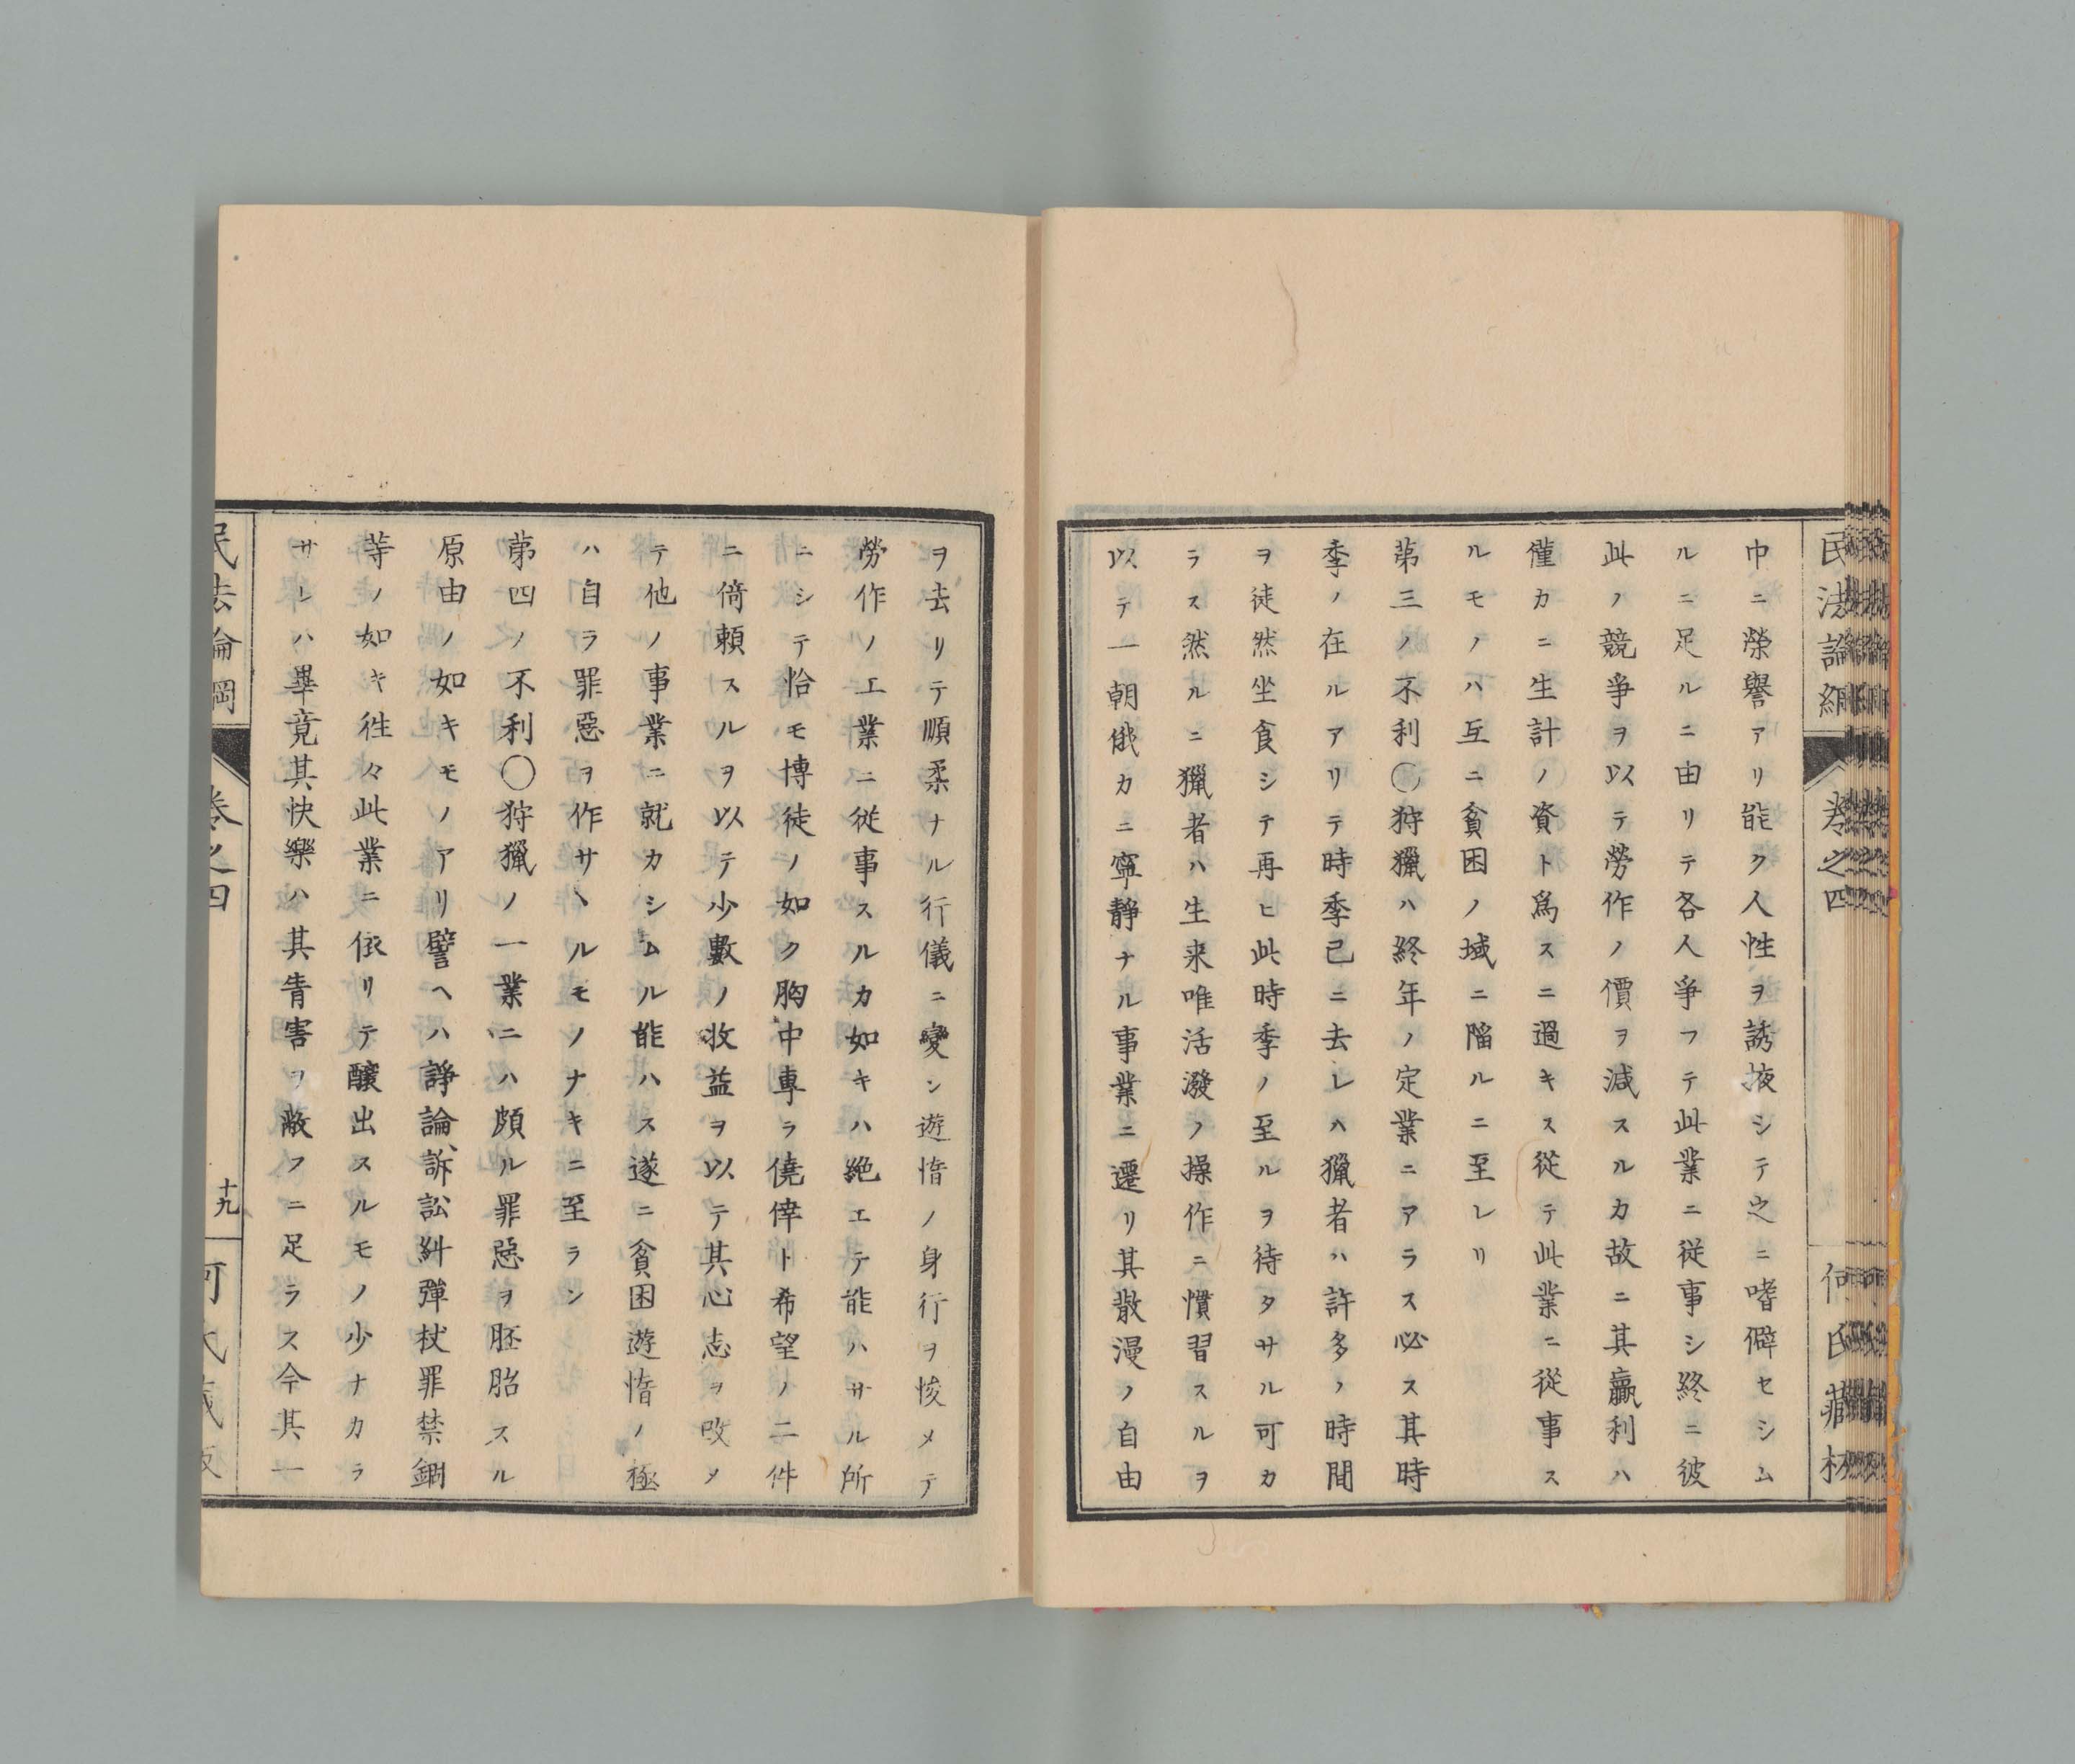 民法論綱
卷之四
何氏藏板
中ニ榮譽アリ能ク人性ヲ誘掖シテ之ニ嗜僻セシム
ルニ足ルニ由リテ各人爭フテ此業ニ從事シ終ニ彼
此ノ競爭ヲ以テ勞作ノ價ヲ減スルカ故ニ其贏利ハ
僅カニ生計ノ資ト爲スニ過キス從テ此業ニ從事ス
ルモノハ互ニ貧困ノ域ニ陷ルニ至レリ
第三ノ不利〇狩獵ハ終年ノ定業ニアラス必ス其時
季ノ在ルアリテ時季已ニ去レハ獵者ハ許多ノ時間
ヲ徒然坐食シテ再ヒ此時季ノ至ルヲ待タサル可カ
ラス然ルニ獵者ハ生来唯活潑ノ操作ニ慣習スルヲ
以テ一朝俄カニ寧靜ナル事業ニ遷リ其散漫ノ自由
ヲ去リテ順柔ナル行儀ニ變シ遊惰ノ身行ヲ悛メテ
勞作ノ工業ニ從事スルカ如キハ絶エテ能ハサル所
ニシテ恰モ博徒ノ如ク胸中專ラ僥倖ト希望ノ二件
ニ倚頼スルヲ以テ少數ノ收益ヲ以テ其心志ヲ改メ
テ他ノ事業ニ就カシムル能ハス遂ニ貧困遊惰ノ極
ハ自ラ罪惡ヲ作サヽルモノナキニ至ラン
第四ノ不利〇狩獵ノ一業ニハ頗ル罪惡ヲ胚胎スル
原由ノ如キモノアリ譬ヘハ諍論、訴訟糾彈杖罪禁錮
等ノ如キ徃々此業ニ依リテ釀出スルモノ少ナカラ
サレハ畢竟其快樂ハ其眚害ヲ敵フニ足ラス今其一
民法論綱
卷之四
十九
何氏藏板